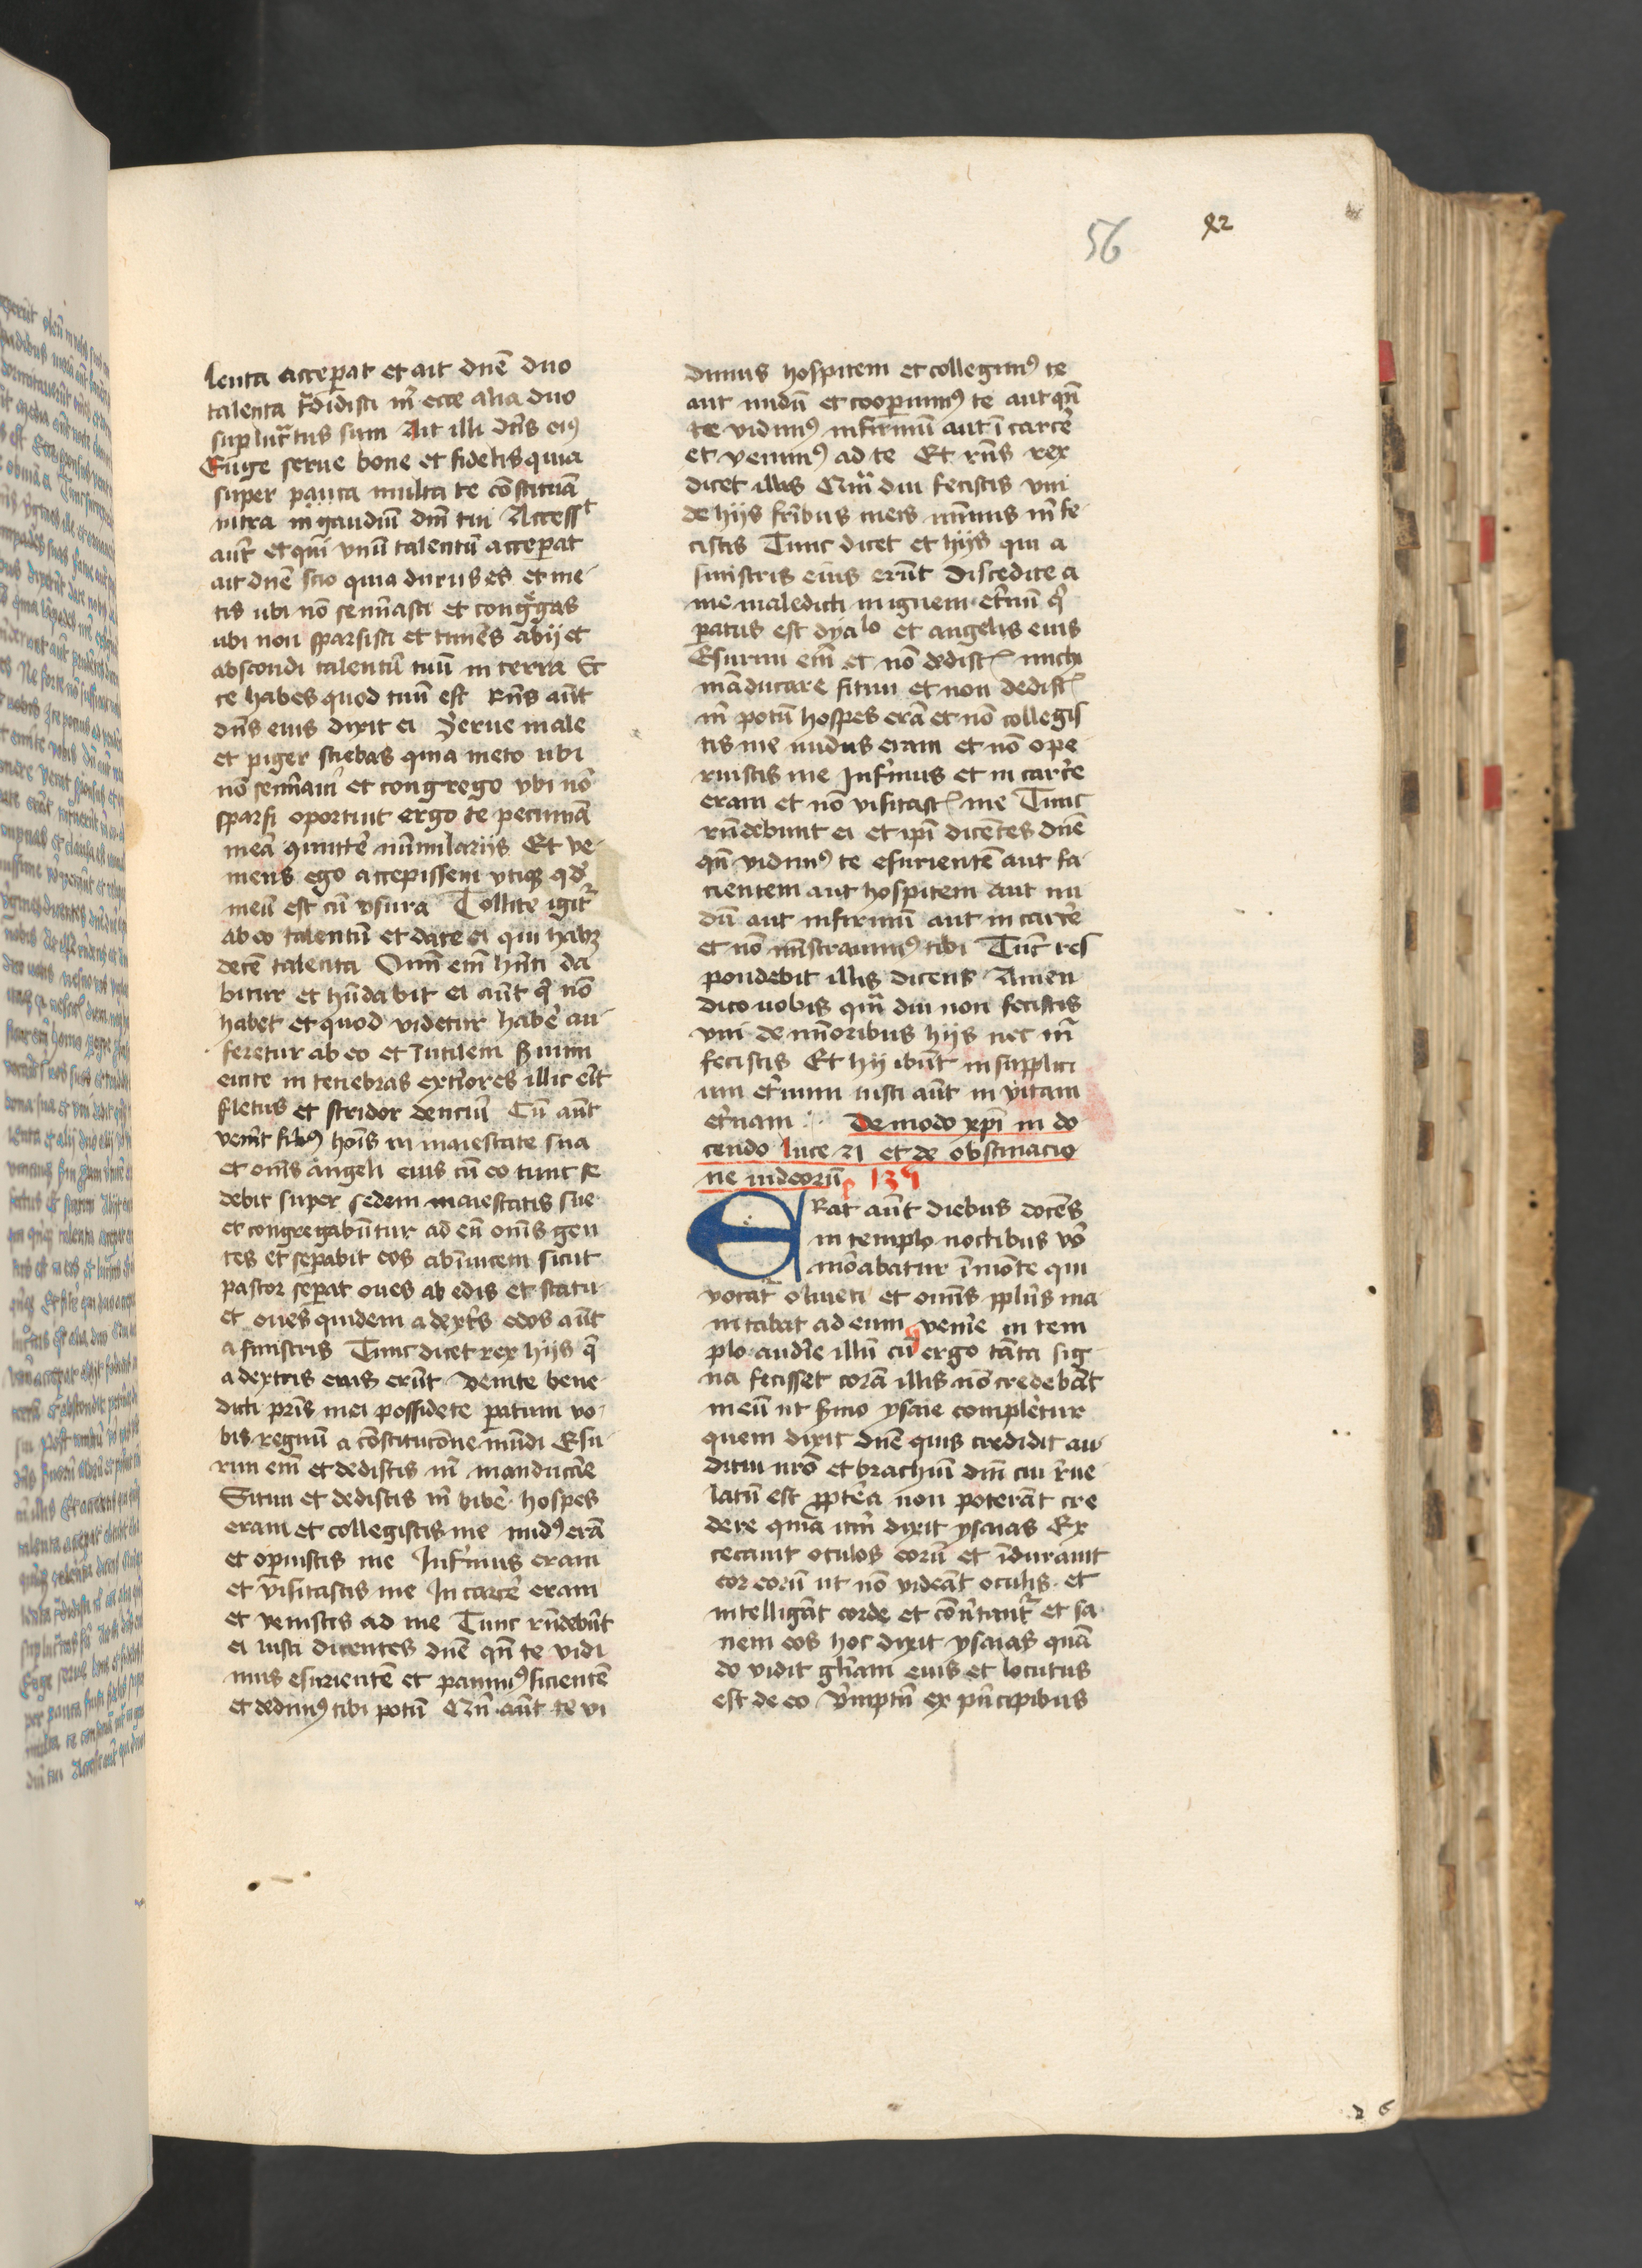 56
lenta acceperat et ait dnē duo
talenta tradidisti m̄ ecce alia duo
suplucratus sum Ait illi dn̄s eiꝰ
Euge serue bone et fidelis quia
super pauca multa te cōstituā
intra in gaudiū dn̄i tui Access̄t
aūt et qui vnū talentū acceꝑat
ait dnē scio quia durus es et me
tis ubi nō semīasti et cong̃gas
ubi non sparsisti et timēs abij et
abscondi talentū tuū in terra Ec
ce habes quod tuū est Rn̄s aūt
dn̄s eius dixit ei Serue male
et piger sciebas quia meto ubi
nō semīaui et congrego vbi nō
sparsi oportuit ergo te pecuniā
meā ꝯmittē nūmulariis Et ve
niens ego accepissem vtiqꝫ qd̄
meū est cū vsura Tollite igitr̃
ab eo talentū et date ei qui habꝫ
decē talenta Omī em̄ hn̄ti da
bitur et hūdabit ei aūt q̄ nō
habet et quod videtur habē au
feretur ab eo et īutilem ẜuum
eicite in tenebras ext̄iores illic er̄t
fletus et stridor denciū Cū aūt
ven̄it filiꝰ hoīs in maiestate sua
et om̄s angeli eius cū eo tunc se
debit super sedem maiestatis sue
et congregabūtur ad eū om̄s gen
tes et seꝑabit eos abīuicem sicut
pastor seꝑat oues ab edis et statu
et oues quidem a dext̄s edos aūt
a sinistris Tunc dicet rex hijs q̄
a dextris eius erūt Venite bene
dicti pr̄is mei possidete ꝑatum vo
bis regnū a cōstitucōne mūdi Esu
riui em̄ et dedistis m̄ manducāe
Sitiui et dedistis m̄ bibē hospes
eram et collegistis me nudꝰ erā
et oꝑuistis me Infirmus eram
et visitastis me In carcē eram
et venistis ad me Tunc rn̄debūt
ei iusti dicentes dnē qn̄ te vidi
mus esurientē et pauimꝰ sicientē
et dedimꝰ tibi potū Qn̄ aūt te vi
dimus hospitem et collegimꝰ te
aut nudū et cooꝑuimꝰ te aut qn̄
te vidimꝰ infirmū aut ī carcē
et venimꝰ ad te Et rn̄s rex
dicet illis Qm̄ diu fecistis vni
de hijs fr̄ibus meis minimis m̄ fe
cistis Tunc dicet et hijs qui a
sinistris eius erūt Discedite a
me maledicti in ignem et̄nū q̄
ꝑatus est dyalo et angelis eius
Esuriui em̄ et nō dedist̄ michi
māducare sitiui et non dedist̄
m̄ potū hospes erā et nō collegis
tis me nudus eram et nō ope
ruistis me Infirmus et in carcē
eram et nō visitast̄ me Tunc
rn̄debunt ei et ip̄i dicētes dnē
qn̄ vidimꝰ te esurientē aut si
cientem aut hospitem aut nu
dū aut infirmū aut in carcē
et nō mīstrauimꝰ tibi Tūc res
pondebit illis dicens Amen
dico uobis qm̄ diu non fecistis
vni de mīoribus hijs nec m̄
fecistis Et hij ibūt in supplici
um et̄num iusti aūt in vitam
et̄nam De modo xp̄i in do
cendo luce 21 et de obstinacio
ne iudeorū
Erat aūt diebus docēs
in templo noctibus vō
morabatur ī monte qui
vocatr̃ oliueti et omīs ppl̄us ma
nicabat ad eum venīe in tem
plo audīe illū cū ergo tāta sig
na fecisset corā illis nō credebāt
in eū ut ẜmo ysaie completur
quem dixit dnē quis credidit au
ditui nr̄o et brachiū dn̄i cui reue
latū est ꝓpt̄ea non poterāt cre
dere quia itm̄ dixit ysaias Ex
cecauit oculos eorū et īdurauit
cor eorū ut nō videāt oculis et
intelligāt corde et cōu̇tantr̃ et sa
nem eos hoc dixit ysaias quā
do vidit gl̄iam eius et locutus
est de eo Vērmptn̄ ex pn̄cipibus